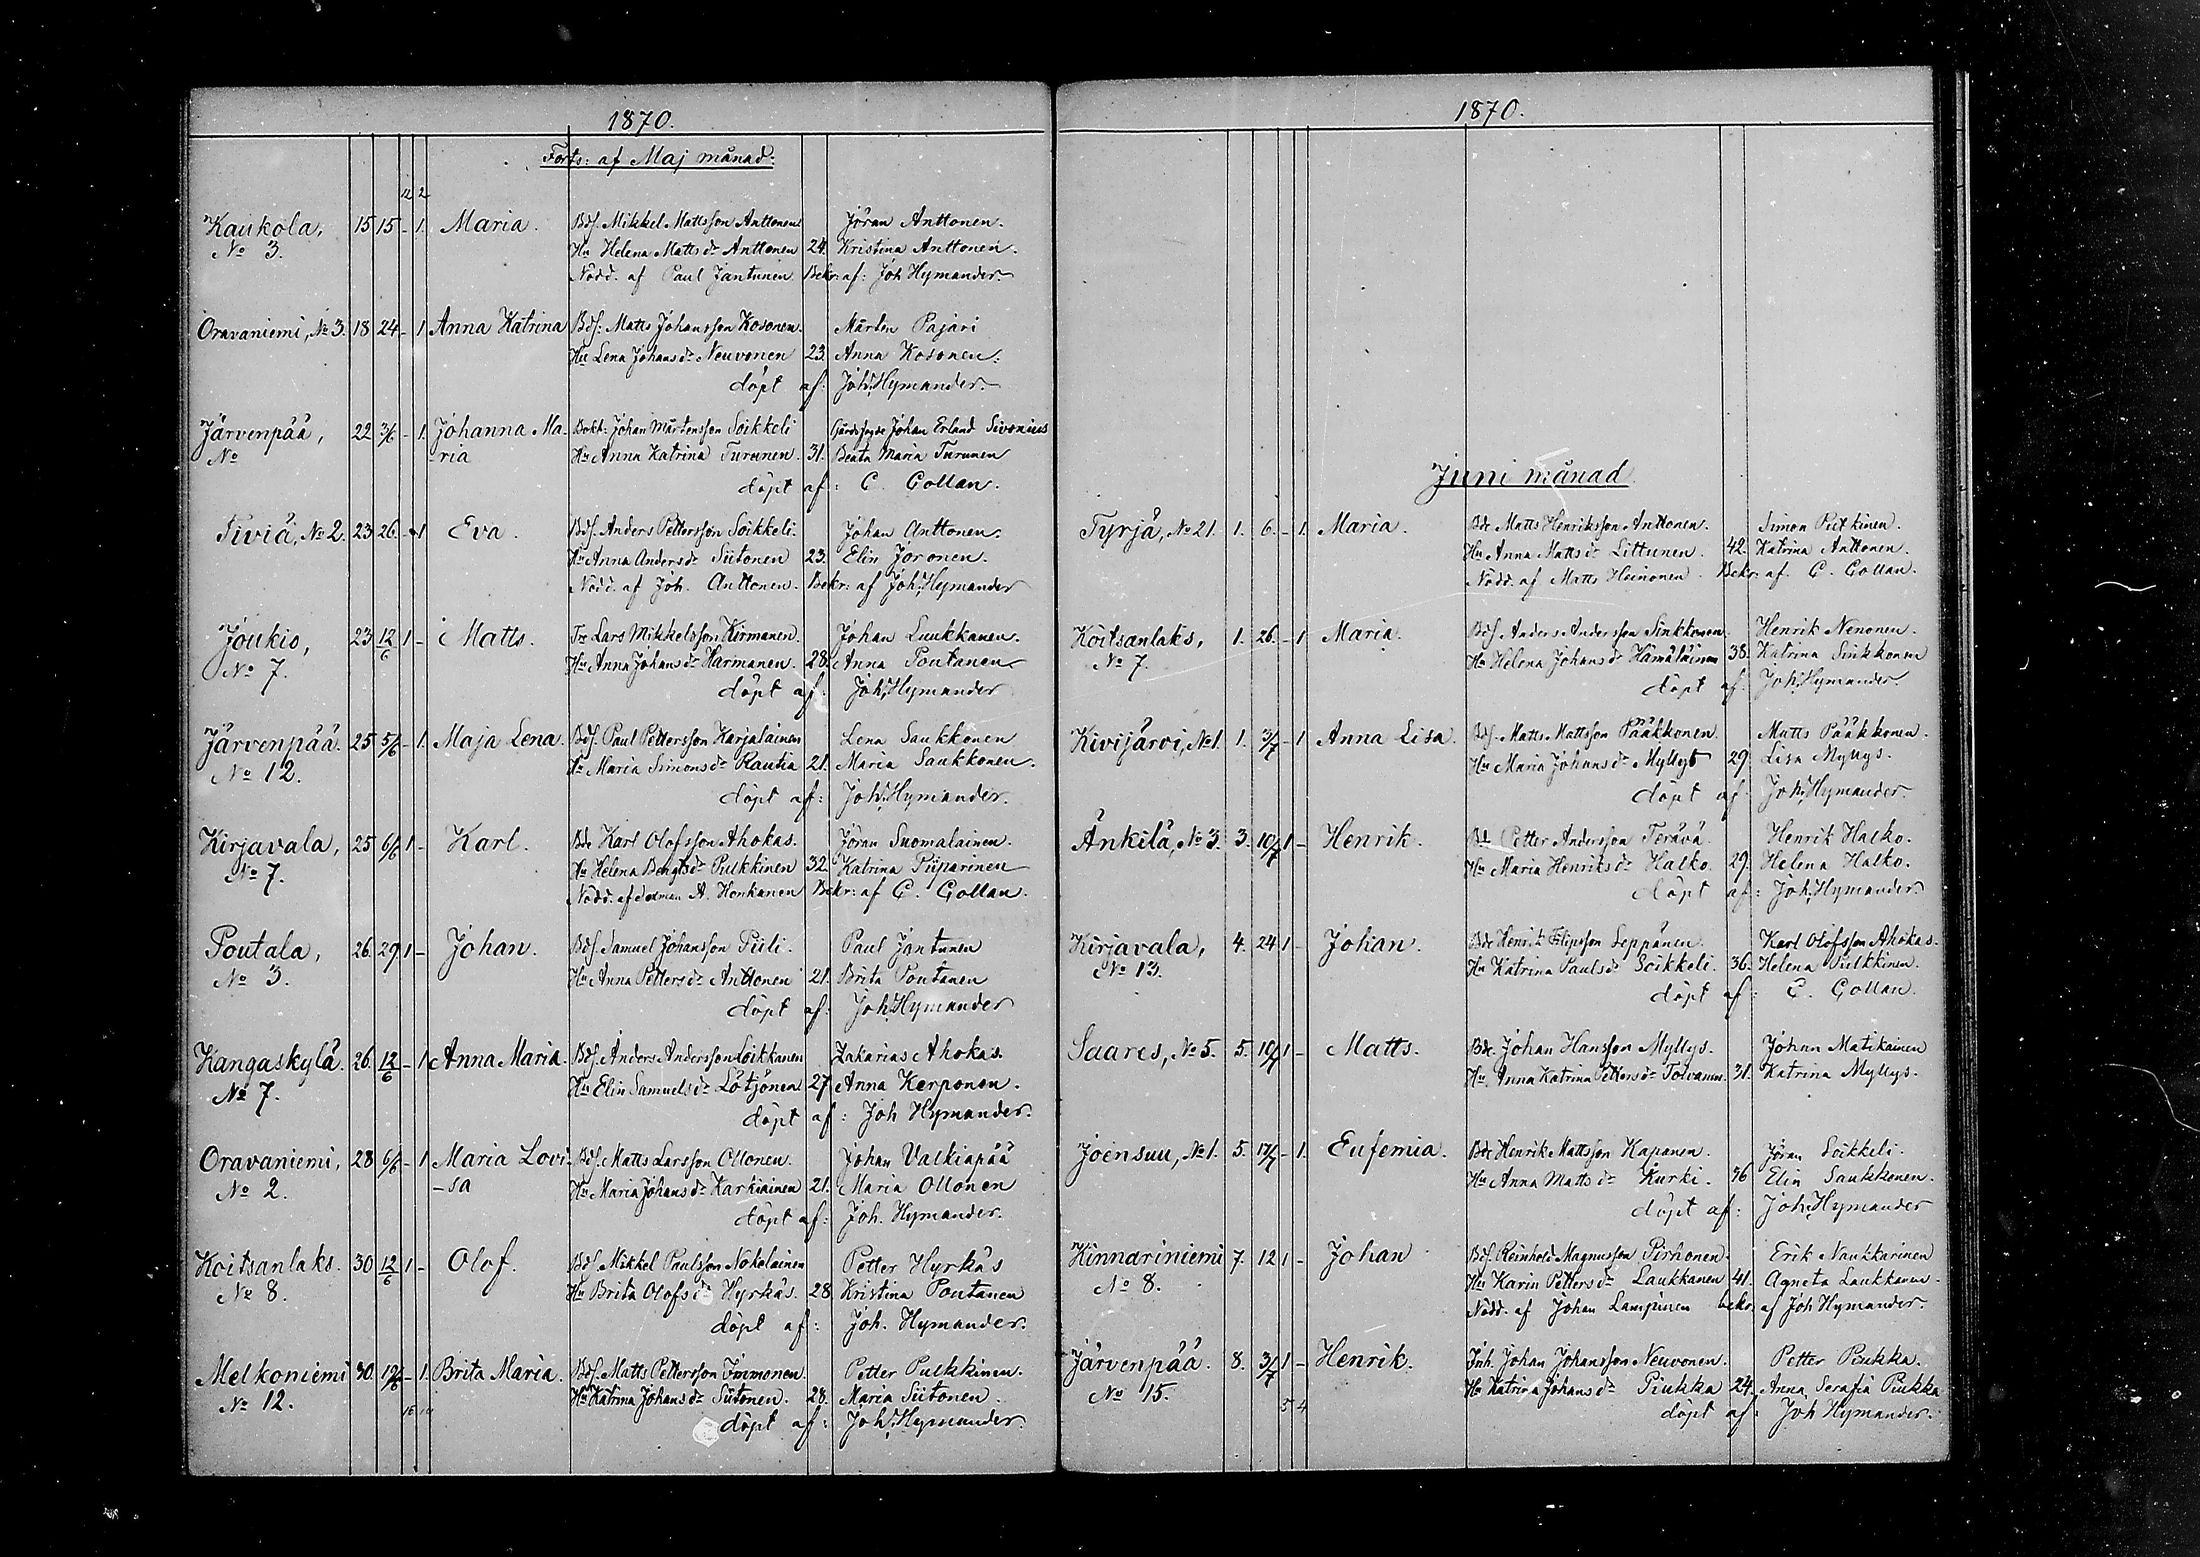 1870.
Forts: af Maj månad.
12 2
Kaukola, 15 15 - 1. Maria. Bdf. Mikkel Mattsson Anttonen Jöran Anttonen.
No 3. Hu Helena Mattsdr Anttonen 24. Kristina Anttonen.
Nödd. af Paul Jantunen Bekr: af: Joh Hymander.
Oravaniemi, No 3. 18 24 - 1 Anna Katrina Bdf: Matts Johansson Kosonen. Mårten Pajari
Hu Lena Johansdr Neuvonen 23. Anna Kosonen.
döpt af: Joh. Hymander.
Järvenpää, 22 3/6 - 1. Johanna Ma- Johan Mårtensson Soikkeli Johan Erland Sivonius
No -ria Hu Anna Katrina Turunen. 31. Beata Maria Turunen
döpt af: C. Gollan.
Tiviä, No 2. 23 26. - 1 Eva. Bdf. Anders Pettersson Soikkeli. Johan Anttonen.
Hu Anna Andersdr Siitonen 23. Elin Joronen.
Nödd. af Joh. Anttonen. Bekr: af Joh. Hymander
Joukio, 23 12/6 1 - Matts. Lars Mikkelsson Kirmanen. Johan Luukkanen.
No 7. Hu Anna Johansdr Harmanen. 28. Anna Poutanen
döpt af: Joh. Hymander
Järvenpää. 25 5/6 - 1. Maja Lena. Bdf. Paul Pettersson Karjalainen Lena Saukkonen
No 12. Hu Maria Simonsdr Rautia 21. Maria Saukkonen.
döpt af: Joh. Hymander.
Kirjavala, 25 6/6 1 - Karl. Bde Karl Olofsson Ahokas. Jöran Suomalainen.
No 7. Hu Helena Bengtsdr Pulkkinen 32. Katrina Piiparinen
Nödd. af A. Honkanen Bekr: af C. Gollan.
Poutala, 26. 29 1 - Johan. Bdf. Samuel Johansson Piili. Paul Jantunen
No 3. Hu Anna Pettersdr Anttonen 21. Brita Poutanen
döpt af: Joh. Hymander
Kangaskylä. 26. 12/6 - 1 Anna Maria. Bdf. Anders Andersson Loikkanen Zakarias Ahokas.
No 7. Hu Elin Samuelsdr Lötjönen 27. Anna Kerponen.
döpt af: Joh Hymander.
Oravaniemi, 28 6/6 - 1 Maria Lovi- Bdf. Matts Larsson Ollonen. Johan Valkiapää
No 2. -sa Hu Maria Johansdr Karkiainen 21. Maria Ollonen
döpt af: Joh. Hymander.
Koitsanlaks. 30 12/6 1 - Olof. Bdf. Mikkel Paulsson Nokelainen Petter Hyrkäs
No 8. Hu Brita Olofsdr Hyrkäs. 28 Kristina Poutanen
döpt af: Joh. Hymander.
Melkoniemi 30. 19/6 - 1. Brita Maria. Bdf. Matts Pettersson Immonen. Petter Pulkkinen.
No 12. Hu Katrina Johansdr Siitonen. 28. Maria Siitonen.
döpt af: Joh. Hymander
1870.
Juni månad
Tyrjä, No 21. 1. 6. - 1. Maria. Bde Matts Henriksson Anttonen. Simon Pitkinen.
Hu Anna Mattsdr Littunen. 42. Katrina Anttonen.
Nödd. af Matts Heinonen. Bekr: af. C. Gollan.
Koitsanlaks, 1. 26. - 1 Maria. Bdf Anders Andersson Sinkkonen. Henrik Nenonen.
No 7. Hu Helena Johansdr Hämäläinen 38. Katrina Sinkkonen
döpt af: Joh. Hymander.
Kivijärvi, No 1. 1. 3/7 - 1 Anna Lisa. Bdf. Matts Mattsson Pääkkönen. Matts Pääkkonen.
Hu Maria Johansdr Myllys 29 Lisa Myllys.
döpt af: Joh. Hymander.
Änkilä, No 3. 3. 10/7 1 - Henrik. Bd Petter Andersson Terävä. Henrik Halko.
Hu Maria Henriksdr Halko. 29. Helena Halko.
döpt af: Joh. Hymander.
Kirjavala, 4. 24 1 - Johan. Bde Henrik Filipsson Seppänen. Karl Olofsson Ahokas.
No 13. Hu Katrina Paulsdr Soikkeli. 36. Helena Pulkkinen.
döpt af: C. Gollan.
Saares, No 5. 5. 10/7 1 - Matts. Bde. Johan Hansson Myllys. Johan Matikainen
Hu. Anna Katrina Pettersdr Tolvanen. 31. Katrina Myllys.
Joensuu, No 1. 5. 17/7 - 1. Eufemia. Bde Henrik Mattsson Kapanen. Jöran Soikkeli.
Hu Anna Mattsdr Kurki. 36 Elin Saukkonen.
döpt af: Joh. Hymander
Kinnariniemi 7. 12 1 - Johan Bdf. Reinhold Magnusson Pirhonen. Erik Naukkarinen
No 8. Hu Karin Pettersdr Laukkanen 41. Agneta Laukkanen.
Nödd. af Johan Lampinen bekr: af Joh Hymander.
Järvenpää. 8. 3/7 1 - Henrik. Inh. Johan Johansson Neuvonen. Petter Piukka.
No 15. Hu Katrina Johansdr Piukka 24. Anna Serafia Piukka
5 4 döpt af: Joh Hymander.